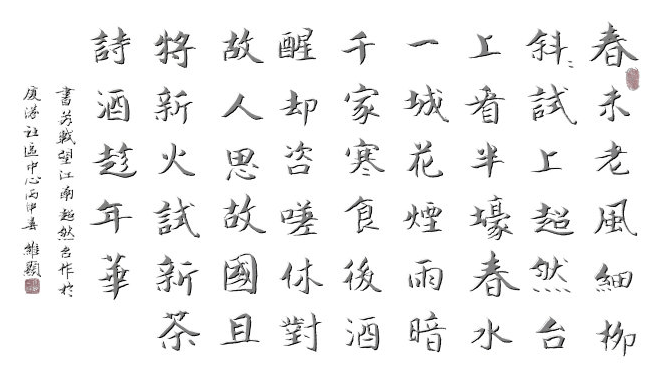 春未老風細柳
斜〻試上超然台
上看半壕春水
一城花煙雨暗
千家寒食後酒
醒却咨嗟休對
故人思故國且
將新火試新茶
詩酒趁年華
書蘇軾望江南超然台作於
社區中心丙申春 維顯